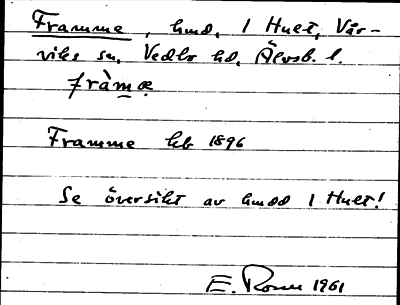 Framme, hmd, 1 Hult, Vår-
viks sn, Vedbo hd, Älvsb. l.
fràmæ
Framme hb 1896
Se översikt av hmdd 1 Hult!
E. Rosen 1961